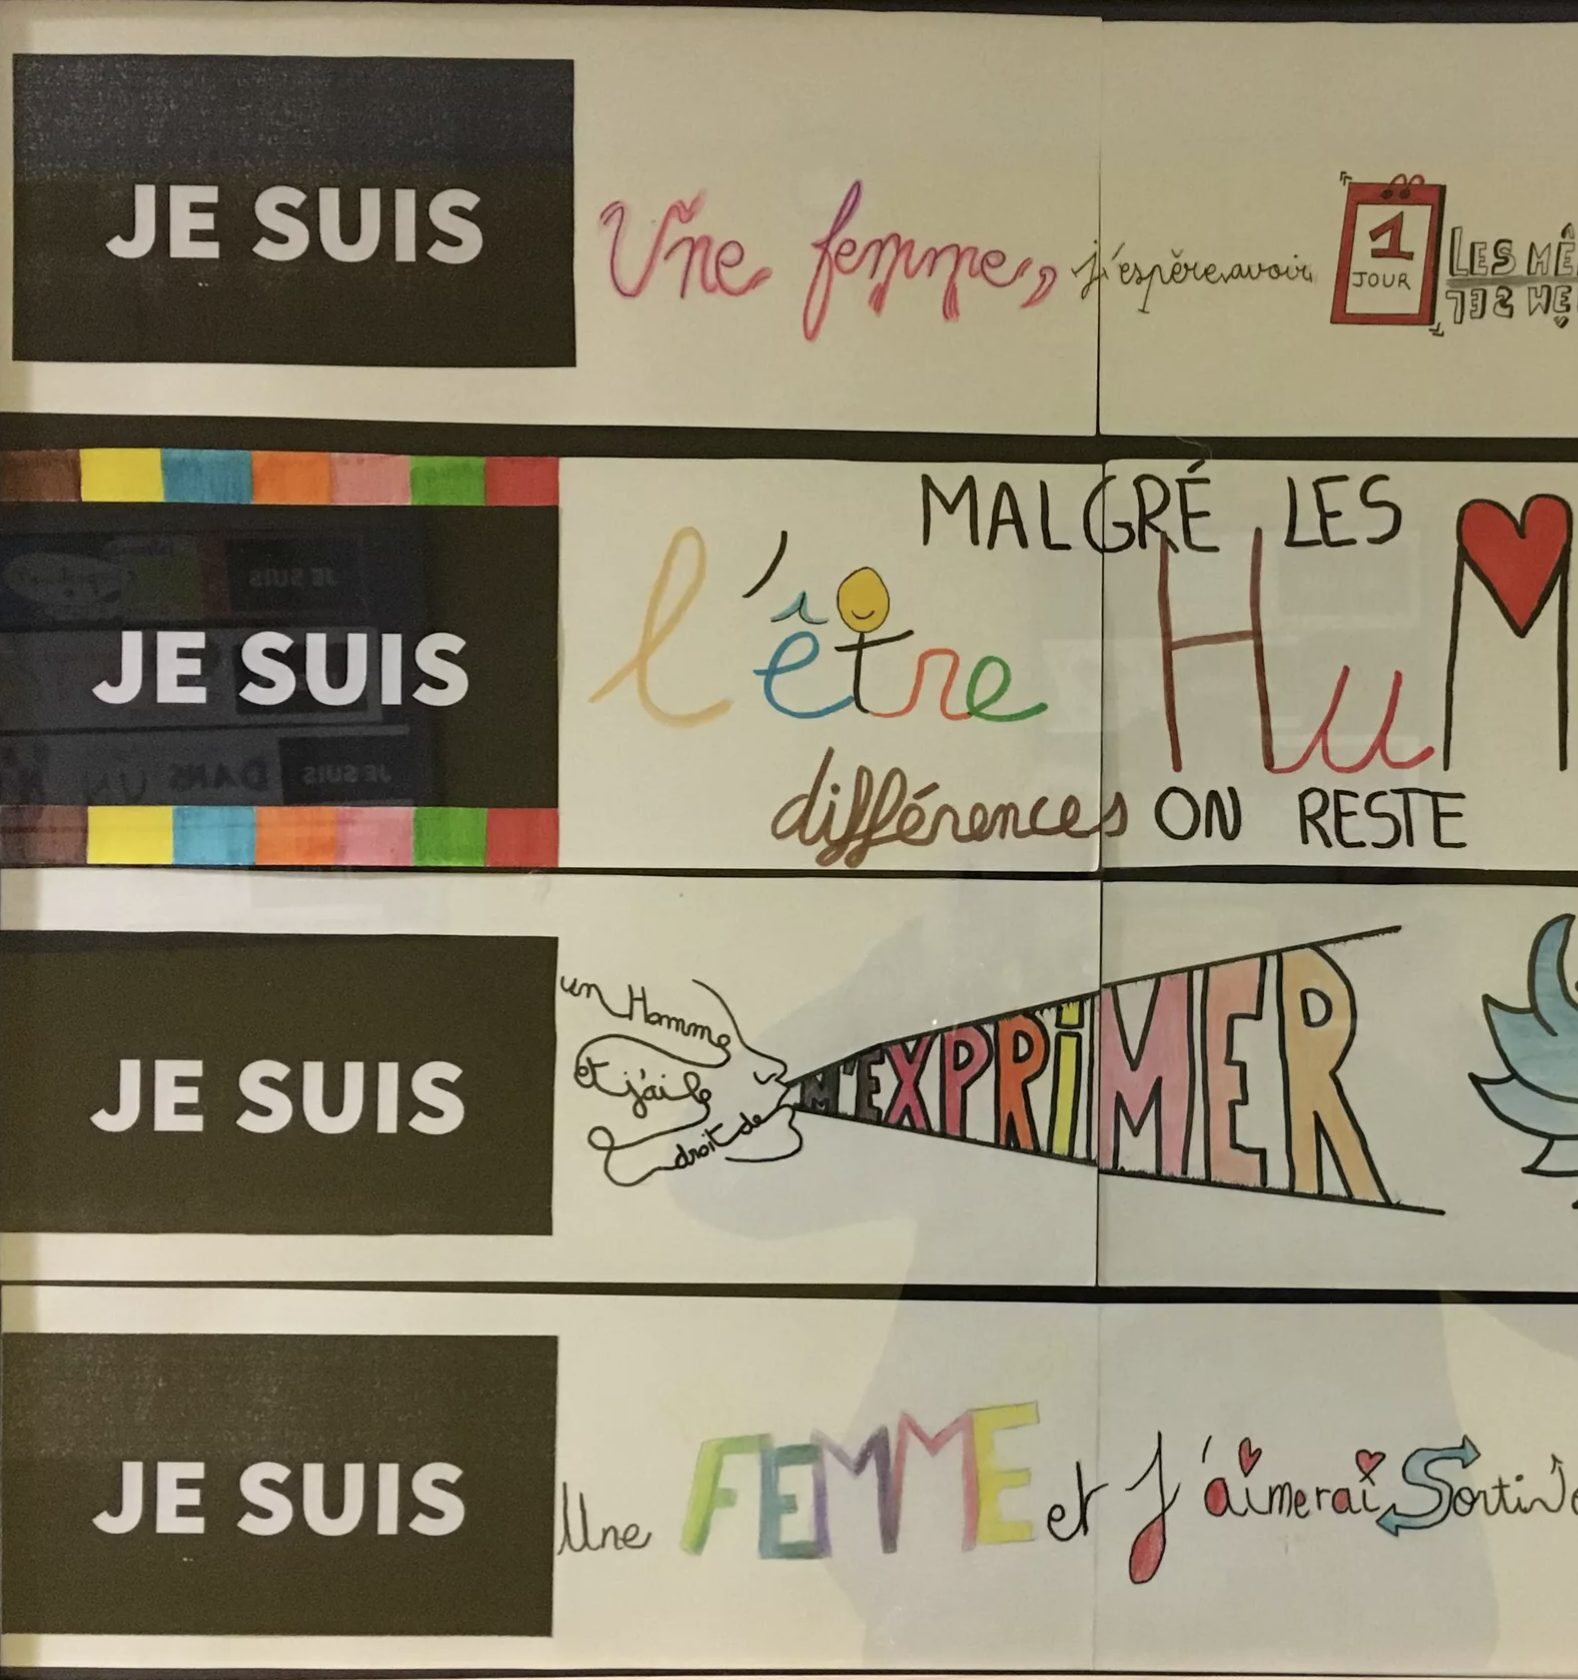 JE SUIS Une femme, j'espère avoir 1 JOUR LES MÊ
JE SUIS l'être HuM
MALGRÉ LES
différences ON RESTE
JE SUIS un Homme
et j'ai le
droit de M'EXPRiMER
JE SUIS Une FEMME et J'aimerai Sortir